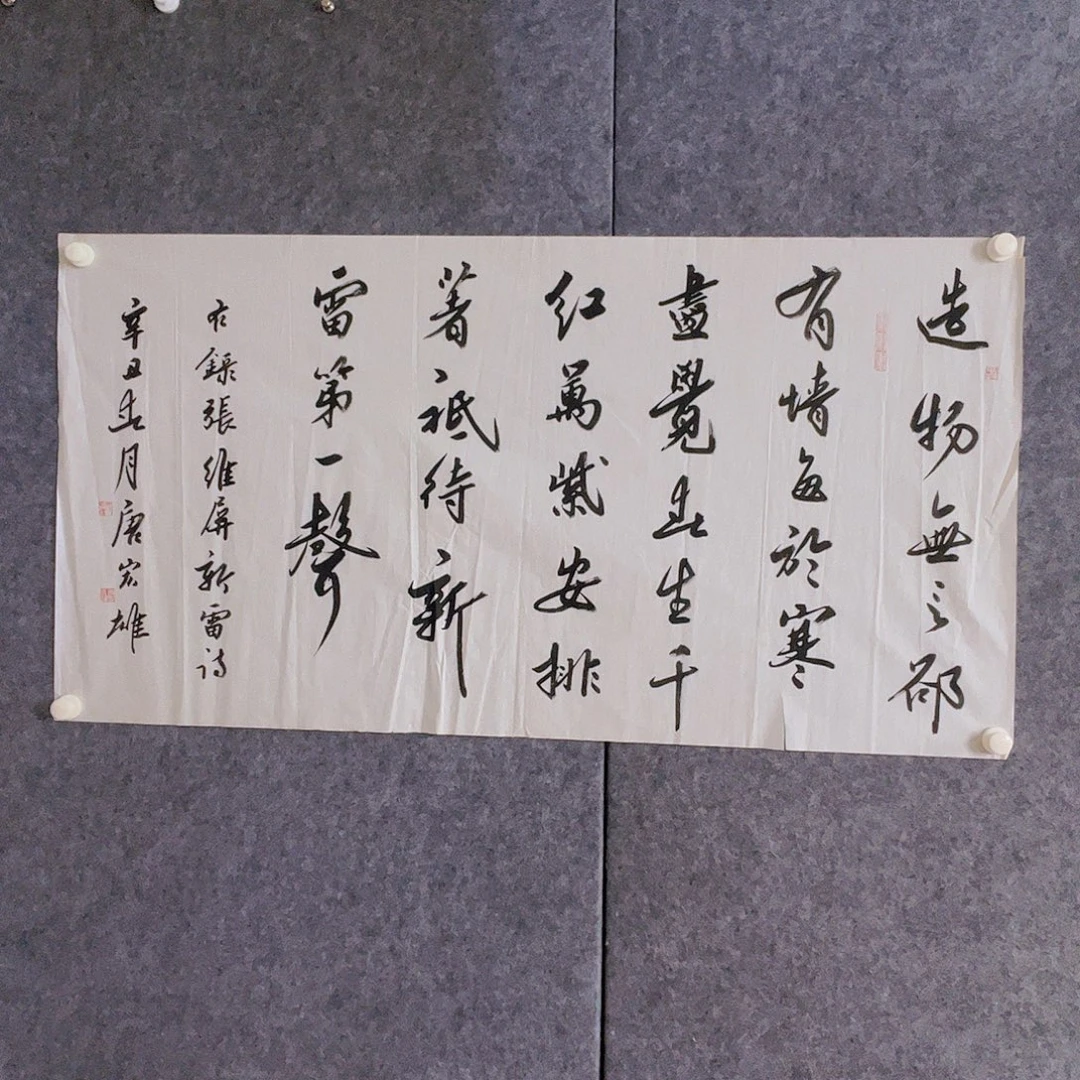 造物無言卻
有情每於寒
盡覺春生千
紅萬紫安排
著祗待新
雷第一聲
右錄張維屏新雷詩
辛丑春月唐宏雄